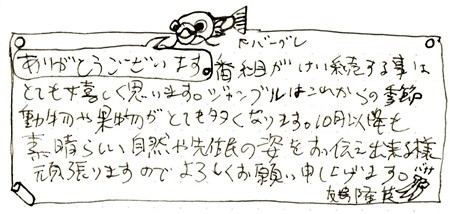 ドバーグレ
ありがとうございます。番組がけい続する事は
とても嬉しく思います。ジャングルはこれからの季節
動物や果物がとても多くなります。10月以降も
素晴らしい自然や先住民の姿をお伝え出来る様
頑張りますのでよろしくお願い申し上げます。
バナナ